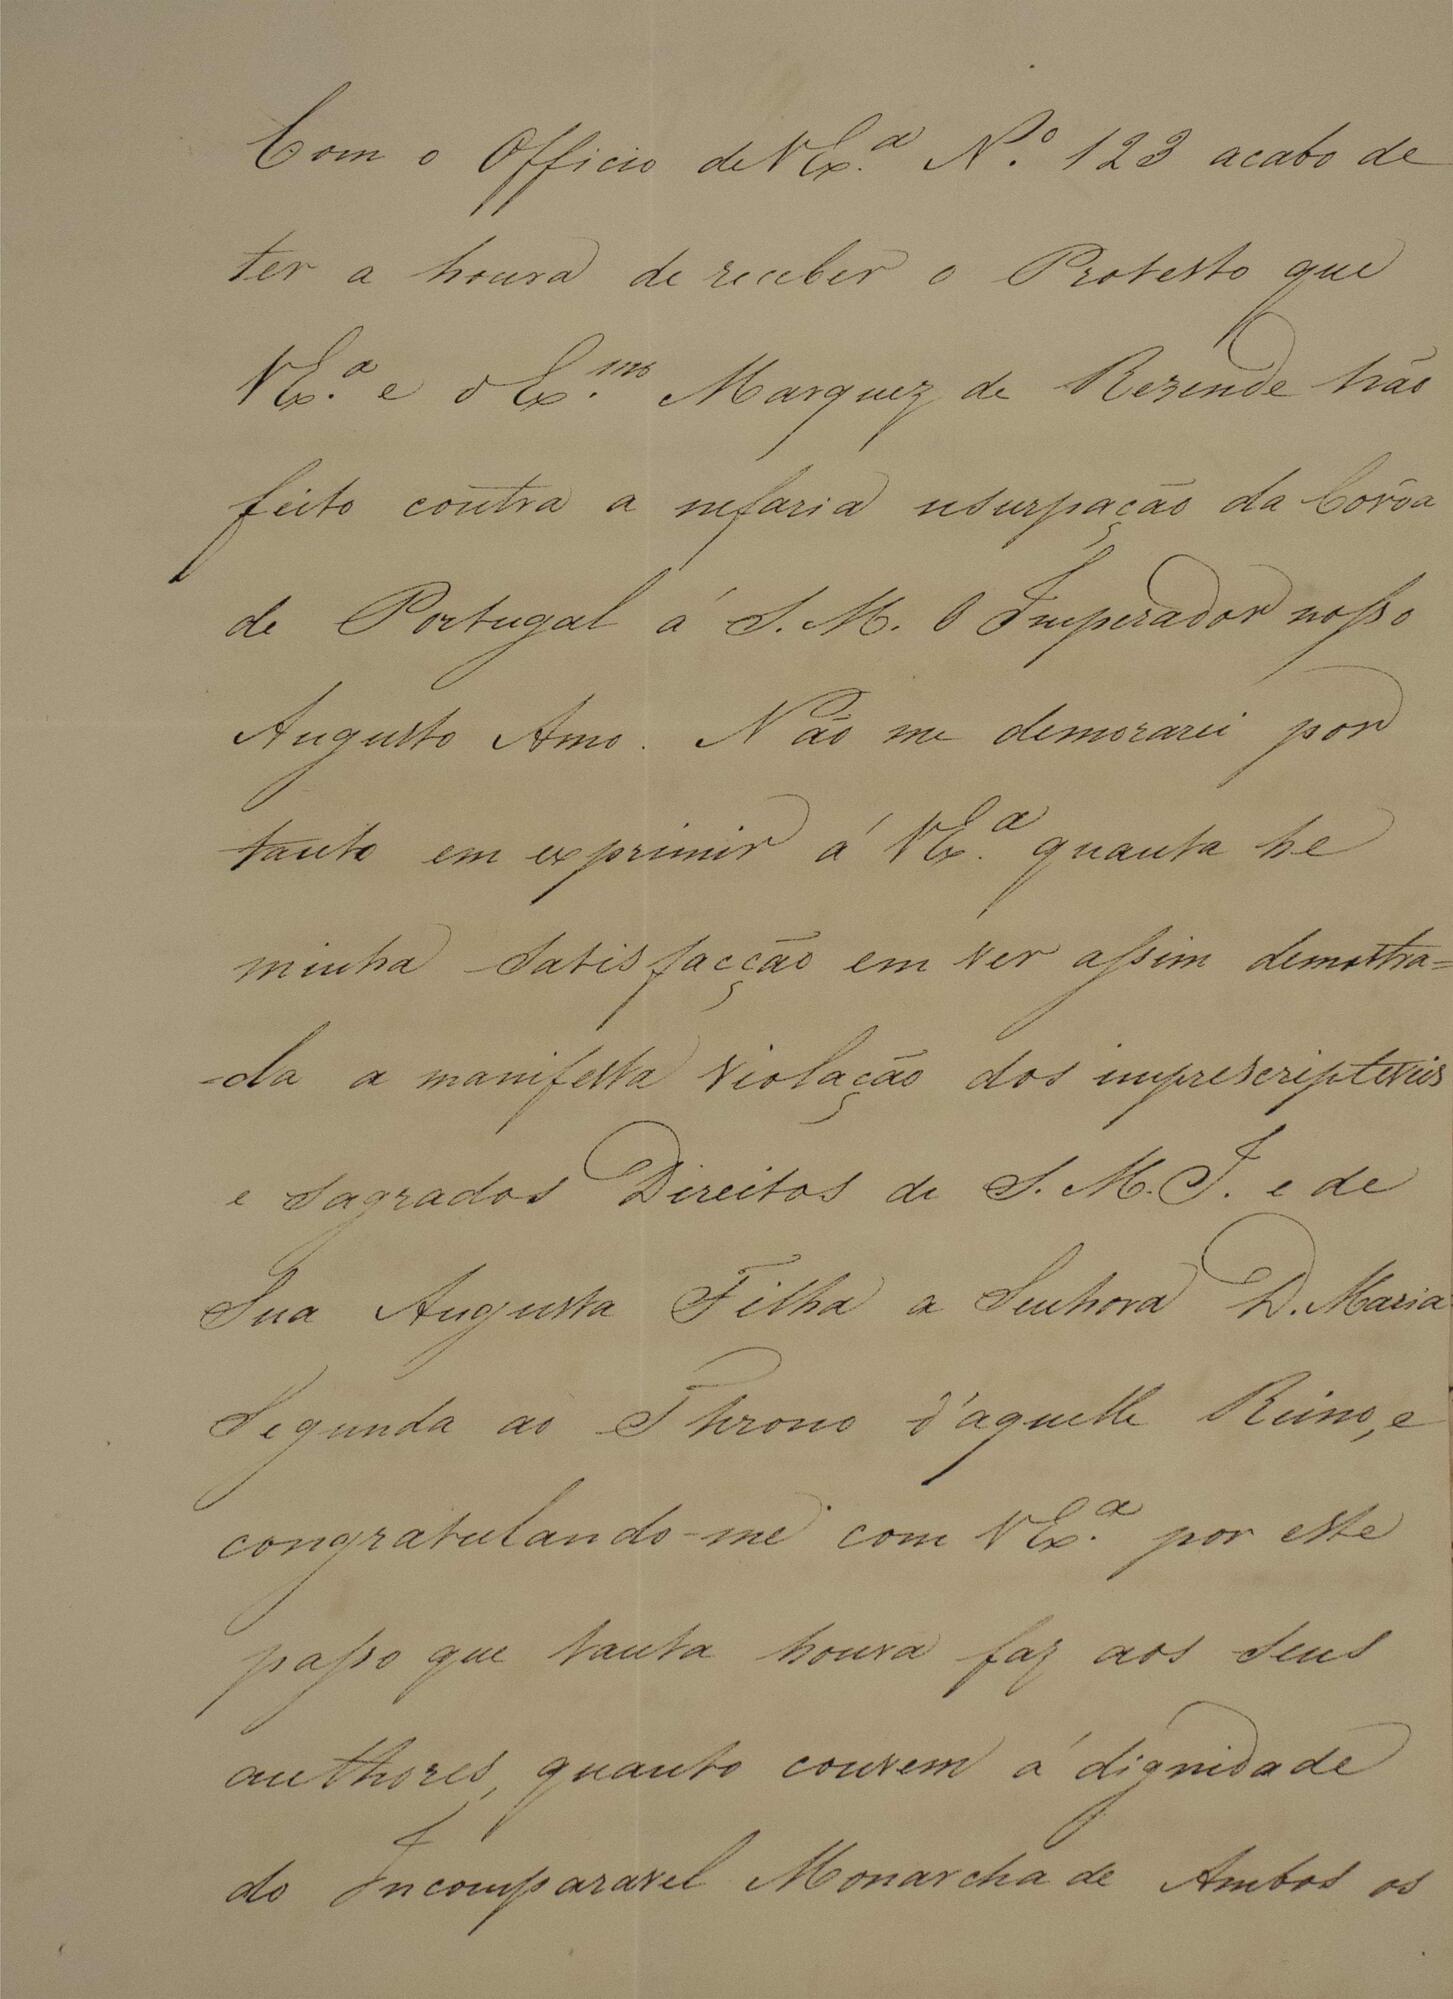 Com o Officio de VEx.ª N.º 123 acabo de
ter a houra de receber o Protesto que
VEx.ª e o Ex.mo Marquez de Rezende hão
feito contra a nefaria usurpação da Corôa
de Portugal á S. M. O Imperador nosso
Augusto Amo. Não me demorarei por
tanto em exprimir á VEx.ª quanta he
minha satisfacção em ver assim demostra=
-da a manifesta violação dos imprescriptiveis
e sagrados Direitos de S. M. I. e de
Sua Augusta Filha a Senhora D. Maria
Segunda ao Throno d'aquelle Reino, e
congratulando-me com VEx.ª por este
passo que tanta honra faz aos seus
authores, quanto convem á dignidade
do Incomparavel Monarcha de Ambos os